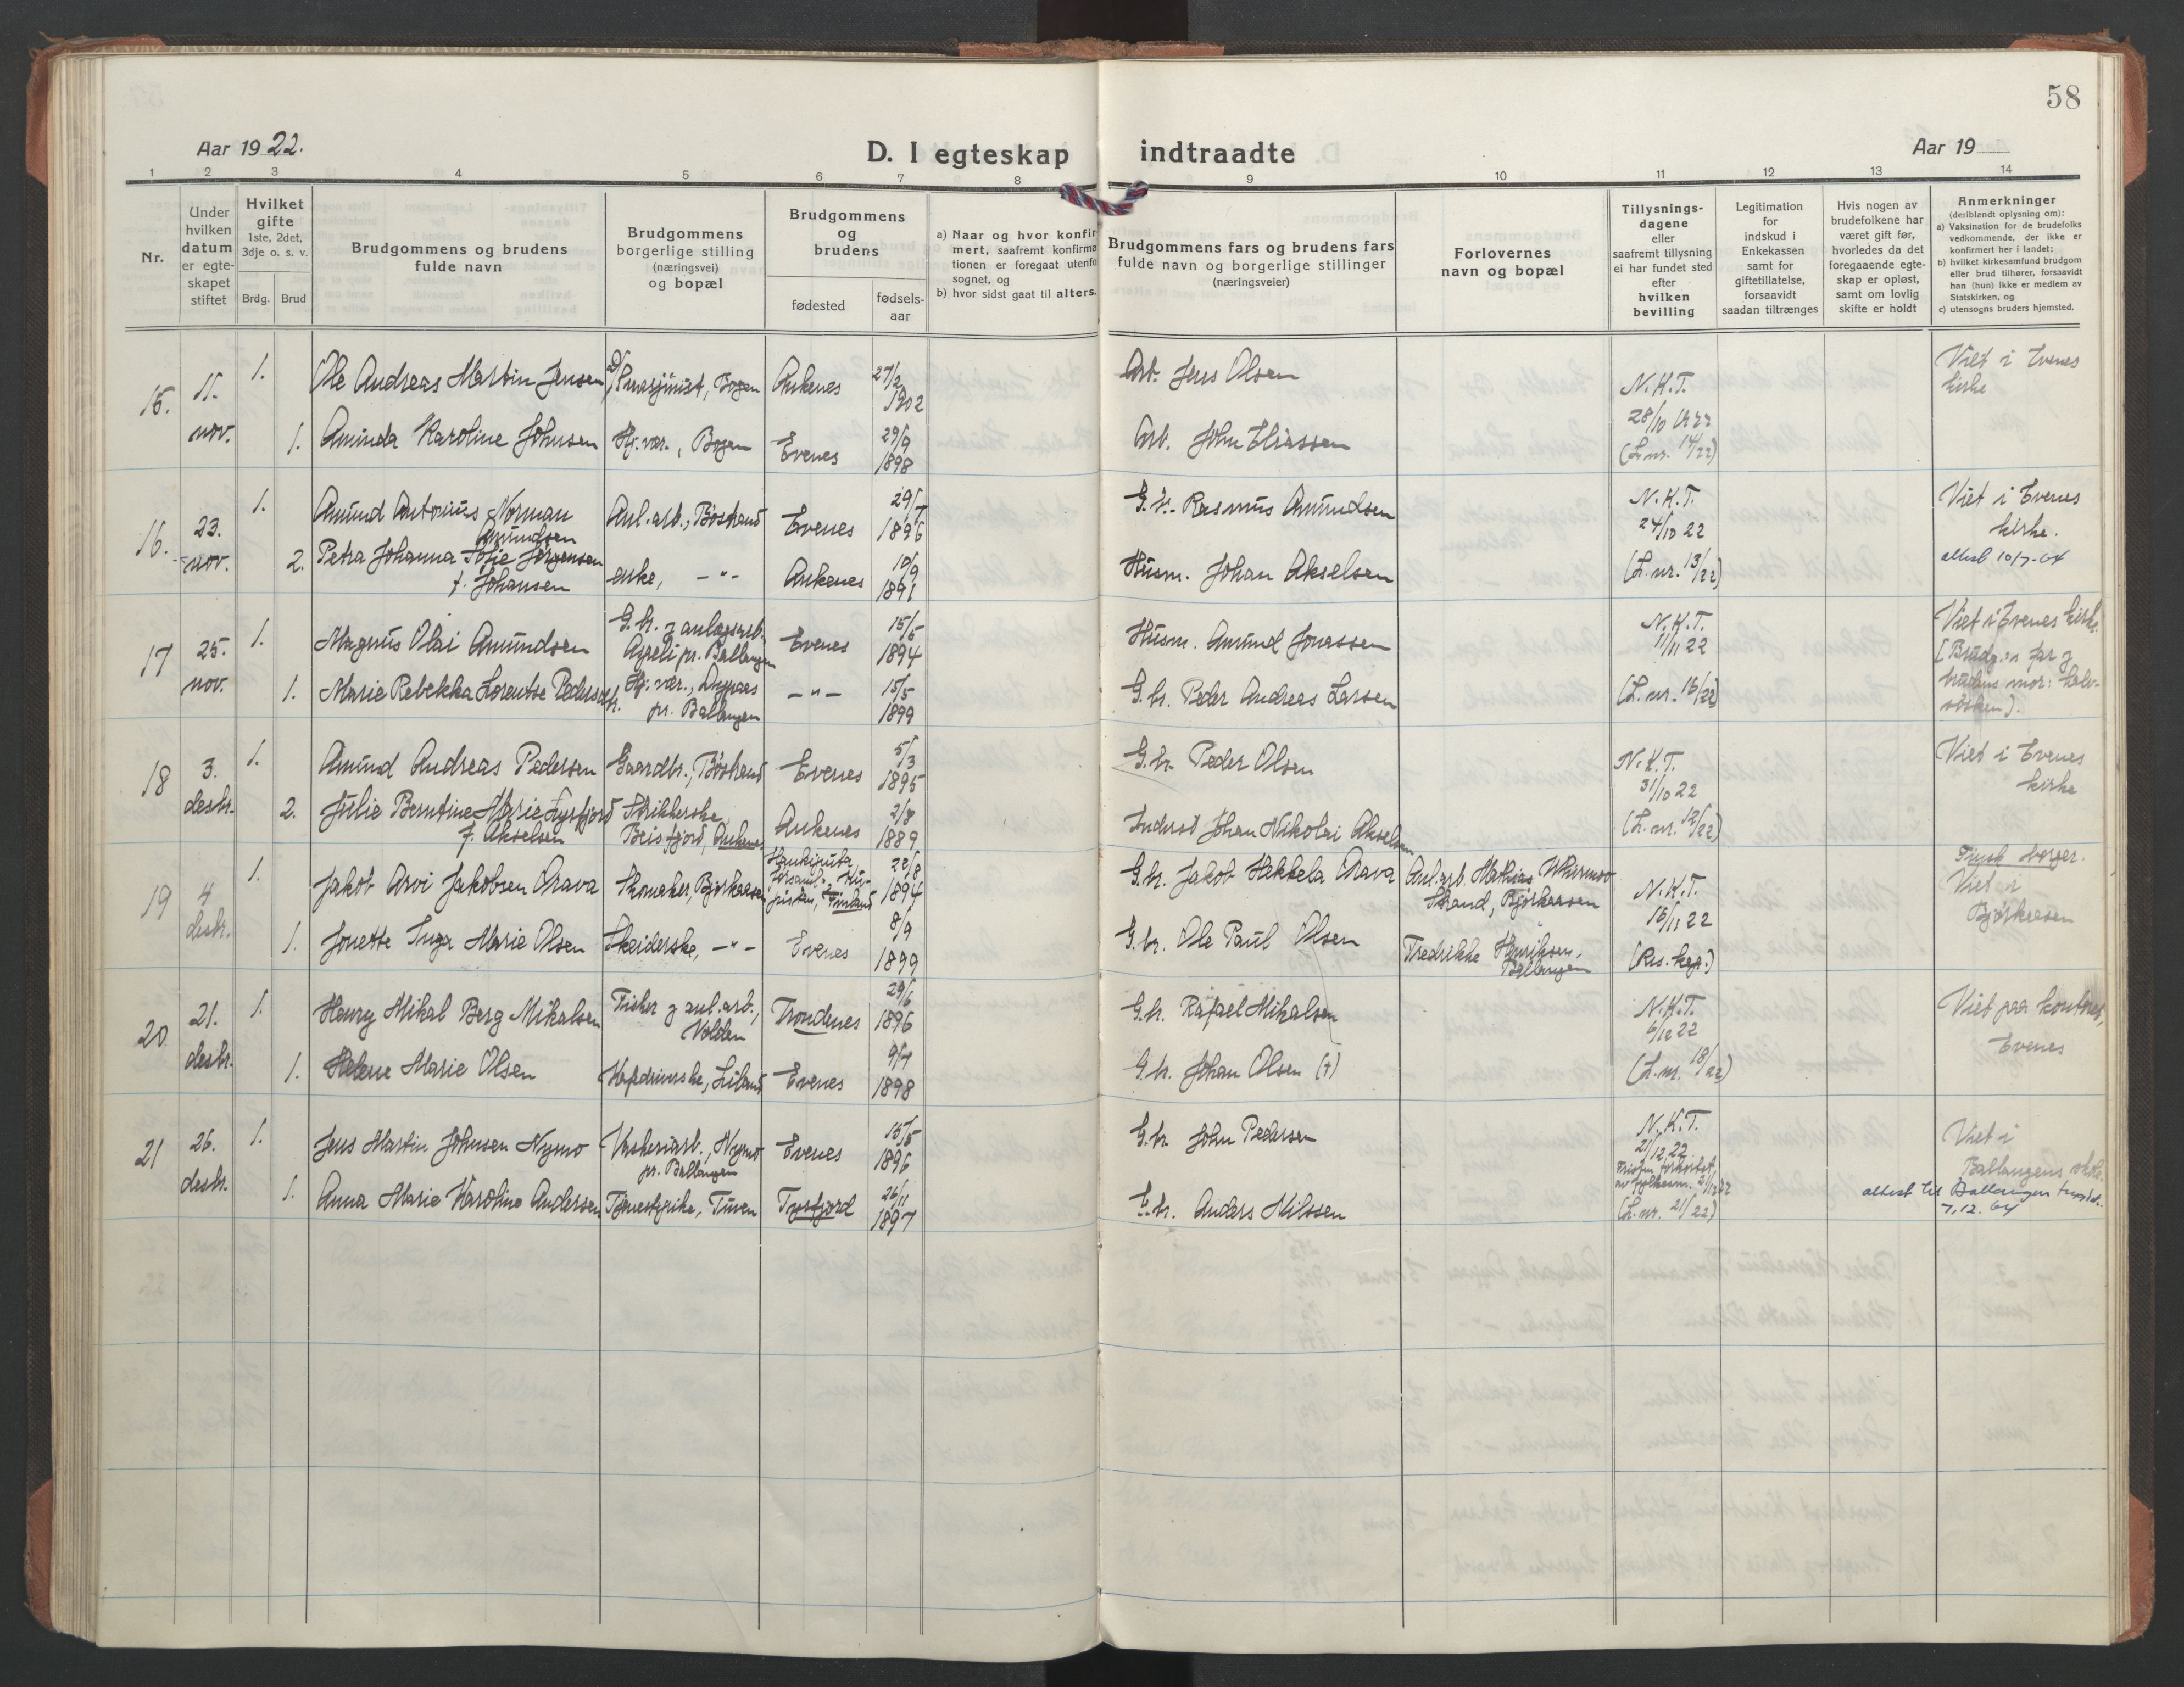 58
Aar 1922.
D. I egteskap indtraadte
Aar 19
1 2 3 4 5 6 7 8 9 10 11 12 13 14
Nr.
Under
hvilken
datum
er egte-
skapet
stiftet
Hvilket
gifte
1ste, 2det,
3dje o. s. v.
Brdg.
Brud
Brudgommens og brudens
fulde navn
Brudgommens
borgerlige stilling
(næringsvei)
og bopæl
Brudgommens
og
brudens
fødested
fødsels-
aar
a) Naar og hvor konfir
mert, saafremt konfirma
tionen er foregaat utenfo
sognet, og
b) hvor sidst gaat til alters.
Brudgommens fars og brudens fars
fulde navn og borgerlige stillinger
(næringsveier)
Forlovernes
navn og bopæl
Tillysnings-
dagene
eller
saafremt tillysning
ei har fundet sted
efter
hvilken
bevilling
Legitimation
for
indskud i
Enkekassen
samt for
giftetillatelse,
forsaavidt
saadan tiltrænges
Hvis nogen av
brudefolkene har
været gift før,
hvorledes da det
foregaaende egte-
skap er opløst,
samt om lovlig
skifte er holdt
Anmerkninger
(deriblandt oplysning om):
a) Vaksination for de brudefolks
vedkommende, der ikke er
konfirmert her i landet;
b) hvilket kirkesamfund brudgom
eller brud tilhører, forsaavidt
han (hun) ikke er medlem av
Statskirken, og
c) utensogns bruders hjemsted.
15.
11.
nov.
1.
Ole Andreas Martin Jensen
Bogen
Ankenes
27/2
1902
Arb. Jens Olsen
N.K.T.
28/10 1922
(L.nr. 14/22)
Viet i Evenes
kirke
1.
Aminda Karoline Johnsen
Hj.vær., Bogen
Evenes
29/9
1898
Arb. John Eliassen
16.
23.
nov.
1.
Amund Antonius Norman
Amundsen
Anl.arb., Bøstrand
Evenes
29/7
1896
G.br. Rasmus Amundsen
N.K.T.
24/10 22
(L.nr. 13/22)
Viet i Evenes
kirke.
attest 10/7-64
2.
Petra Johanna Sofie Jørgensen
f. Johansen
enke, -"-
Ankenes
10/9
1891
Husm. Johan Akselsen
17
25.
nov.
1.
Magnus Olai Amundsen
G.br. og anlægsarb.
pr. Ballangen
Evenes
15/5
1894
Husm. Amund Jonassen
N.K.T.
11/11 22
(L.nr. 16/22)
Viet i Evenes kirke.
[Brudg.s far og
brudens mor: halv-
søsken].
1.
Marie Rebekka Lorentse Pedersen
Hj.vær.,
pr. Ballangen
-"-
15/5
1899
G.br. Peder Andreas Larsen
18
3.
desbr.
1.
Amund Andreas Pedersen
Gaardbr., Bøstrand
Evenes
5/3
1895
G.br. Peder Olsen
N.K.T.
31/10 22
(L.nr. 12/22)
Viet i Evenes
kirke
2.
Julie Berntine Marie Tysfjord
f. Akselsen
Strikkerske,
Beisfjord, Ankenes
Ankenes
2/8
1889
Inderst Johan Nikolai Akselsen
19
4
desbr.
1.
Jakob Arvi Jakobsen Orava
Skomaker, Bjerkaasen
Finland
22/8
1894
G.br. Jakob Hekkela Orava
Anl.arb. Mathias
Strand, Bjørkaasen
N.K.T.
16/11 22
(Res. kap.)
Finsk borger.
Viet i
Bjørkaasen
1.
Jonette Inga Marie Olsen
Skredderske, -"-
Evenes
8/9
1899
G.br. Ole Paul Olsen
Fredrikke Henriksen,
Ballangen
20
21.
desbr.
1.
Henry Mikal Berg Mikalsen
Fisker og anl.arb.,
Volden
Trondenes
29/6
1896
G.br. Rafael Mikalsen
N.K.T.
6/12 22
(L.nr. 18/22)
Viet paa kontoret,
Evenes
1.
Helene Marie Olsen
Kafedriverske, Liland
Evenes
9/4
1898
G.br. Johan Olsen (†)
21
26.
desbr.
1.
Jens Martin Johnsen Nymo
Vaskeriarb., Nymo
pr. Ballangen
Evenes
15/5
1896
G.br. John Pedersen
N.K.T.
21/12 22
(L.nr. 21/22)
Viet i
Ballangens
attest til Ballangen
7.12.64
1.
Anna Marie Karoline Andersen
Tjenestepike,
Tysfjord
26/11
1897
G.br. Anders Nilssen